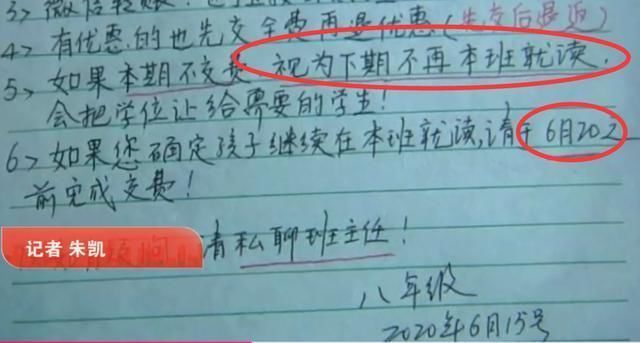 3> 微信转账
4> 有优惠的也先交全费再退优惠(先交后退
5> 如果本期不交费,视为下期不再本班就读,
会把学位让给需要的学生!
6> 如果您确定孩子继续在本班就读,请于6月20之
前完成交费!
记者 朱凯
请私聊班主任!
八年级
2020年6月15号